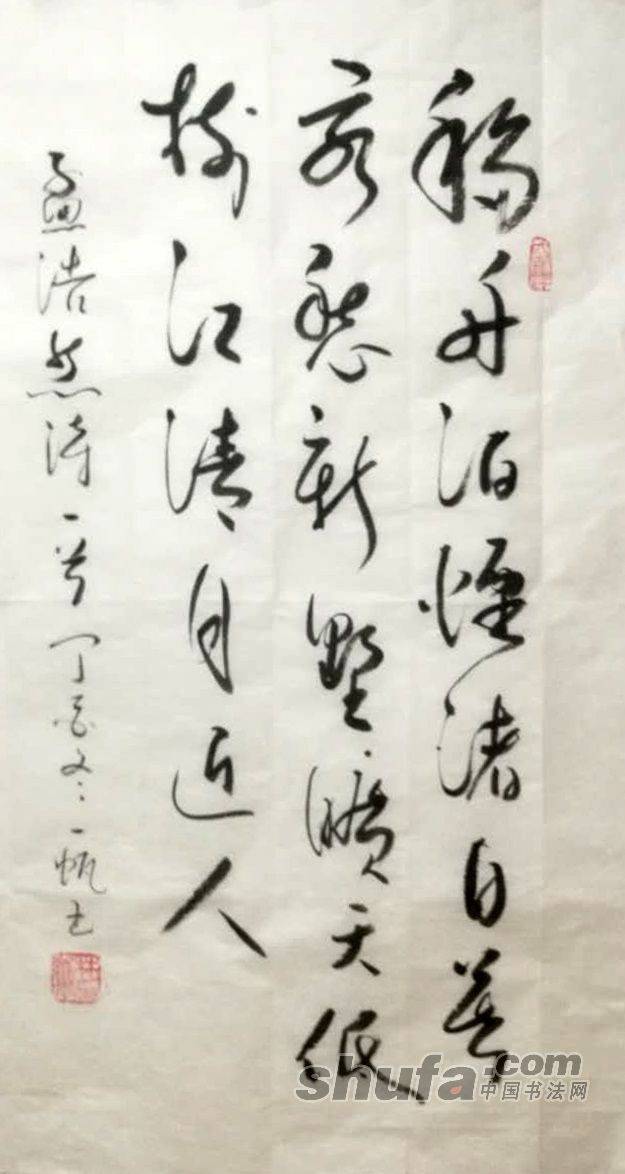 移舟泊煙渚日暮
客愁新野曠天低
樹江清月近人
孟浩然诗一首丁酉冬一帆书
shufa.com
中国书法网